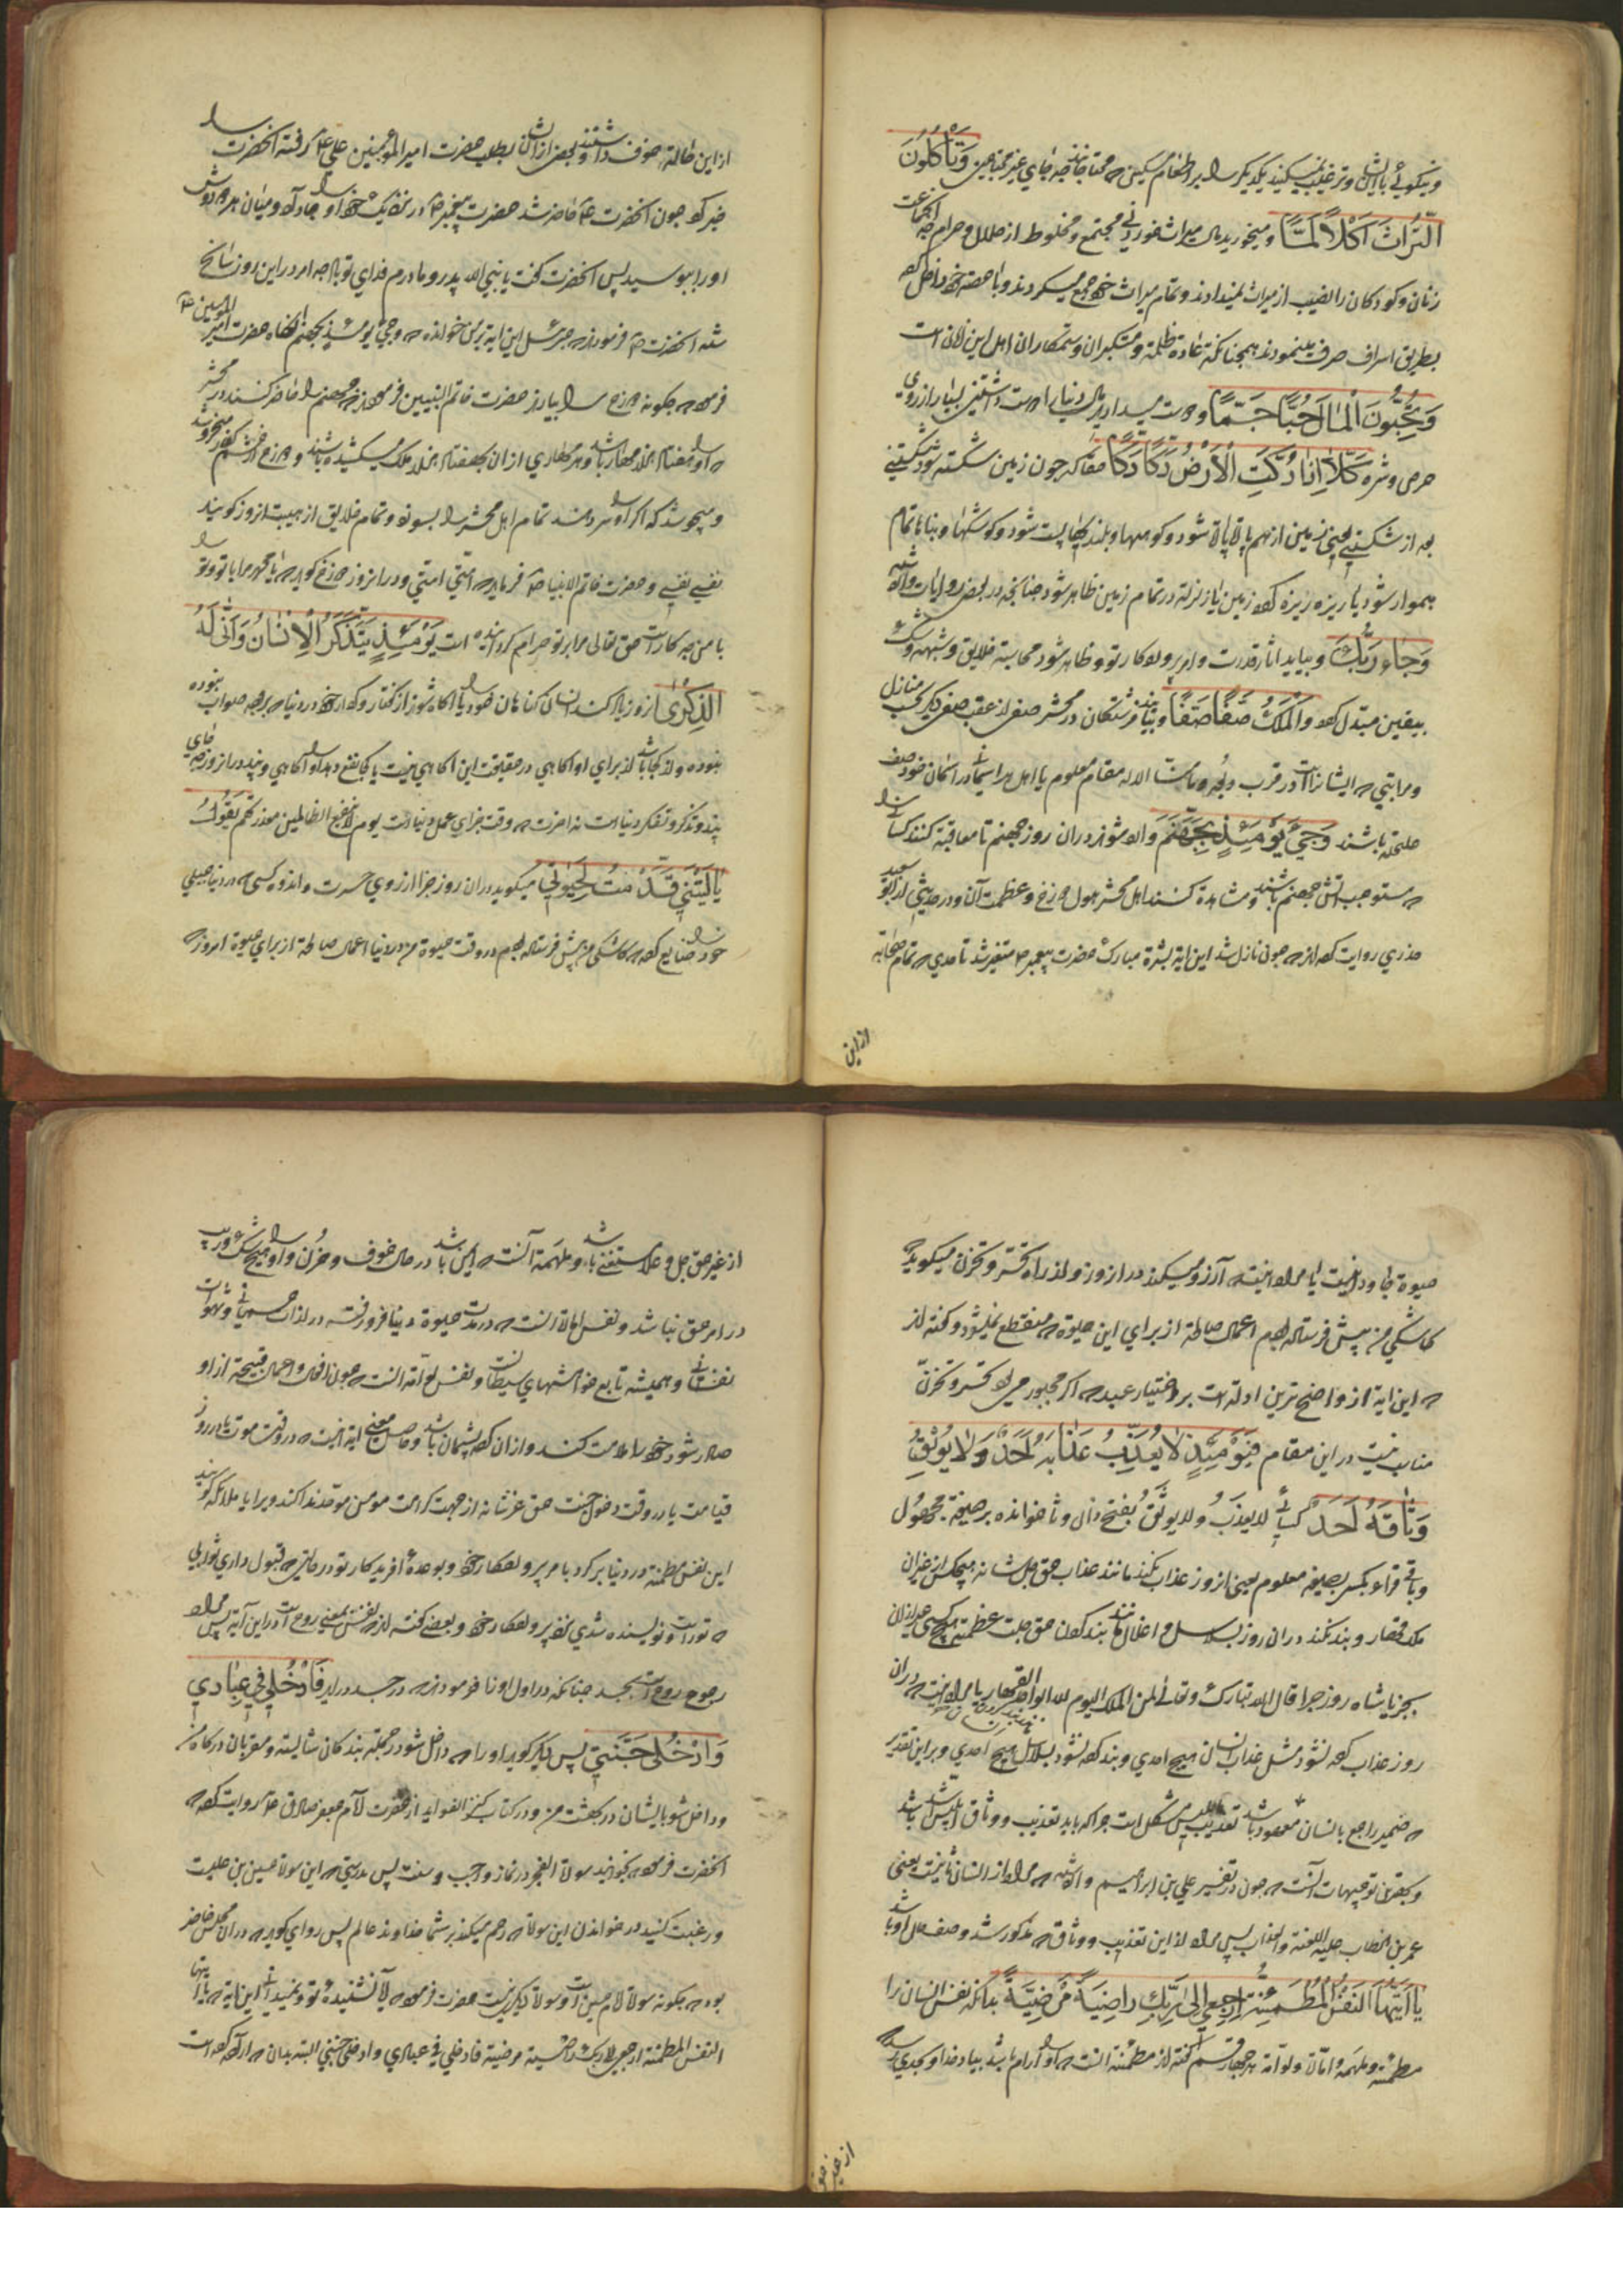 ونیکوئی با ایشان وترغیب نمیکنید یکدیگر را بر اطعام مسکین محتاجانند چه جای غیر محتاجین وَتَأْكُلُونَ
التُّرَاثَ أَكْلًا لَمًّا ومیخورید مال میراث خوردنی مجتمع ومخلوط از حلال وحرام چه
زنان وکودکان را نصیب از میراث نمیدادند وتمام میراث جمع میکردند وبا حصه
بطریق اسراف صرف مینمودند همچنانکه عاده ظلمه ومتکبران وستمکاران اهل این زمان است
وَتُحِبُّونَ الْمَالَ حُبًّا جَمًّا ودوست میدارید مال دنیا را دوست داشتنی بسیار از روی
حرص وشره كَلَّا إِذَا دُكَّتِ الْأَرْضُ دَكًّا دَكًّا حقا که چون زمین شکسته شود شکستنی
بعد از شکستنی یعنی زمین از هم پاره پاره شود وکوهها وبلندیها پست شود وکوشکها وبناها تمام
هموار شود یا ریزه ریزه زمین یا زلزله در تمام زمین ظاهر شود چنانچه در بعض روایات
وَجَاءَ رَبُّكَ وبیاید اثار قدرت وامر پروردکار تو وظاهر شود محاسبه خلایق وشبهه وشک
بیقین مبدل وَالْمَلَكُ صَفًّا صَفًّا وبیایند فرشتکان در محشر صفی از عقب صفی دیگر بحسب منازل
ومراتبی که ایشانراست در قرب وما منا الا له مقام معلوم یا اهل هر اسمانی در اسمان خود صف
حلقه باشند وَجِيءَ يَوْمَئِذٍ بِجَهَنَّمَ واورده شود در ان روز جهنم تا معاقبه کنند کسانی را
که مستوجب اتش جهنم باشند ومشاهده کنند اهل محشر هول دوزخ وعظمت آن ودر حدیثی از ابو سعید
خدری روایت که چون نازل شد این ایه بشره مبارک حضرت پیغمبر متغیر شد تا حدی که تمام صحابه
از این
از این حاله خوف داشتند وبعض از ایشان بطلب حضرت امیر المؤمنین علی رفته انحضرت را
خبر کرد چون انحضرت حاضر شد حضرت پیغمبر در نزدیک خود او را جا داد ومیان هر دو دوش
او را ببوسید پس انحضرت کفت یا نبی الله پدر ومادرم فدای تو باد چه امر در این روز سانح
شده انحضرت فرمودند که جبرئیل این ایه بر من خوانده وجیء یومئذ بجهنم انکاه حضرت امیر المؤمنین
فرمود که چکونه دوزخ را بیارند حضرت خاتم النبیین فرمودند که جهنم را حاضر کنند در محشر
که او را هفتاد هزار مهار باشد وهر مهاری از ان بهفتاد هزار ملک میکشیده باشند ودوزخ از خشم
ومیجوشد که اکر او را سر دهند تمام اهل محشر را بسوزد وتمام خلایق از هیبت انروز کویند
نفسی نفسی وحضرت خاتم الانبیا فریاد امتی امتی ودر انروز دوزخ کوید که یا محمد مرا با تو وتو را
با من چه کار است حق تعالی مرا بر تو حرام کردانیده است يَوْمَئِذٍ يَتَذَكَّرُ الْإِنْسَانُ وَأَنَّى لَهُ
الذِّكْرَى انروز یاد کند انسان کناهان خود را یا اکاه شود از کفتار وکردار خود در دنیا که بر وجه صواب نبوده
نبوده واز کجا باشد از برای او اکاهی در حقیقت این اکاهی نیست یا کجا نفع دهد او را اکاهی وپند در انروز چه جای
پند وتذکر وتفکر دنیا است نه اخرت که وقت جزای عمل دنیا است یوم لا ینفع الظالمین معذرتهم يَقُولُ
يَا لَيْتَنِي قَدَّمْتُ لِحَيَاتِي میکوید در ان روز جزا از روی حسرت واندوه کسی که در دنیا
خود را ضایع کرده کاشکی من پیش فرستاده بودم در وقت حیوة من در دنیا اعمال صالحه از برای حیوة امروز که
حیوة جاودانیست یا مراد اینست که آرزو میکند در انروز واز راه تحسر وتحزن میکوید
کاشکی من پیش فرستاده بودم اعمال صالحه از برای این حیوة که منقطع نمیشود وکفته اند
که این ایه از واضح ترین ادله است بر اختیار عبد که اکر مجبور می بود تحسر وتحزن
مناسب نیست در این مقام فَيَوْمَئِذٍ لَا يُعَذِّبُ عَذَابَهُ أَحَدٌ وَلَا يُوثِقُ
وَثَاقَهُ أَحَدٌ کسائی لا یعذب ولا یوثق بفتح ذال وثا خوانده بر صیغه مجهول
وباقی قراء بکسر بصیغه معلوم یعنی انروز عذاب نکند مانند عذاب حق جل شانه هیچکس از
ملک قهار وبند نکند در ان روز بسلاسل واغلال مانند بند کردن حق جلت عظمته هیچ کسی
بجز پادشاه روز جزا قال الله تبارک وتعالی لمن الملک الیوم لله الواحد القهار یا مراد اینست که در ان
روز عذاب کرده نشود مثل عذاب انسان هیچ احدی وبند کرده نشود بسلاسل هیچ احدی وبر این تقدیر
که ضمیر راجع بانسان باشد مشکل است چرا که باید تعذیب ووثاق ابلیس اشد باشد
وبهترین توجیهات آنست که چون در تفسیر علی بن ابراهیم که مراد از انسان ثانیست یعنی
عمر بن الخطاب علیه اللعنه والعذاب پس مراد از این تعذیب ووثاق که مذکور شد وصف حال او باشد
يَا أَيَّتُهَا النَّفْسُ الْمُطْمَئِنَّةُ ارْجِعِي إِلَى رَبِّكِ رَاضِيَةً مَرْضِيَّةً بدانکه نفس انسان را
مطمئنه وملهمه وامّاره ولوّامه بر چهار قسم کفته اند مطمئنه آنست که او را آرام باشد بیاد خدا
از غیر حق
از غیر حق جل وعلا مستغنی باشد وملهمه آنست که باشد در حال خوف وحزن واو را هیچ شک وریب
در امر حق نباشد ونفس اماره انست که در مدت حیوة دنیا فرو رفته در لذات جسمانی وشهوات
نفسانی وهمیشه تابع خواهشهای شیطانست ونفس لوامه انست که چون افعال واعمال قبیحه از او
صادر شود خود را ملامت کند واز ان کرده پشیمان باشد وحاصل معنی ایه اینست که در وقت موت یا در روز
قیامت یا در وقت دخول جنت حق عز شانه از جهت کرامت مومن موحد ندا کند ویرا یا ملائکه کویند
این نفس مطمئنه در دنیا بر کرد با مر پروردکار خود وبوعده افریدکار تو در حالتی که قبول داری ثوابی
که تو راست ونویسنده شدی نزد پروردکار خود وبعضی کفته اند نفس بمعنی روح است در این آیه پس مراد
رجوع روح است بجسد چنانکه در اول او را فرمودند که در جسد در اید فَادْخُلِي فِي عِبَادِي
وَادْخُلِي جَنَّتِي پس دیکر کوید او را که داخل شو در جمله بندکان شایسته ومقربان درکاه من
وداخل شو با ایشان در بهشت من ودر کتاب کنز الفواید از حضرت امام جعفر صادق روایت کرده که
انحضرت فرمود که بخوانید سورة الفجر در نماز واجب وسنت پس بدرستی که این سورة حسین بن علیست
ورغبت کنید در خواندن این سورة که رحم میکند بر شما خداوند عالم پس راوی کوید که در ان مجلس حاضر
بودم که چکونه سورة امام حسین است وسورة دیکر نیست حضرت فرمود که آیا نشنیده تو ونمیدانی این ایه یا ایتها
النفس المطمئنه ارجعی الی ربک راضیة مرضیة فادخلی فی عبادی وادخلی جنتی البته بدان که